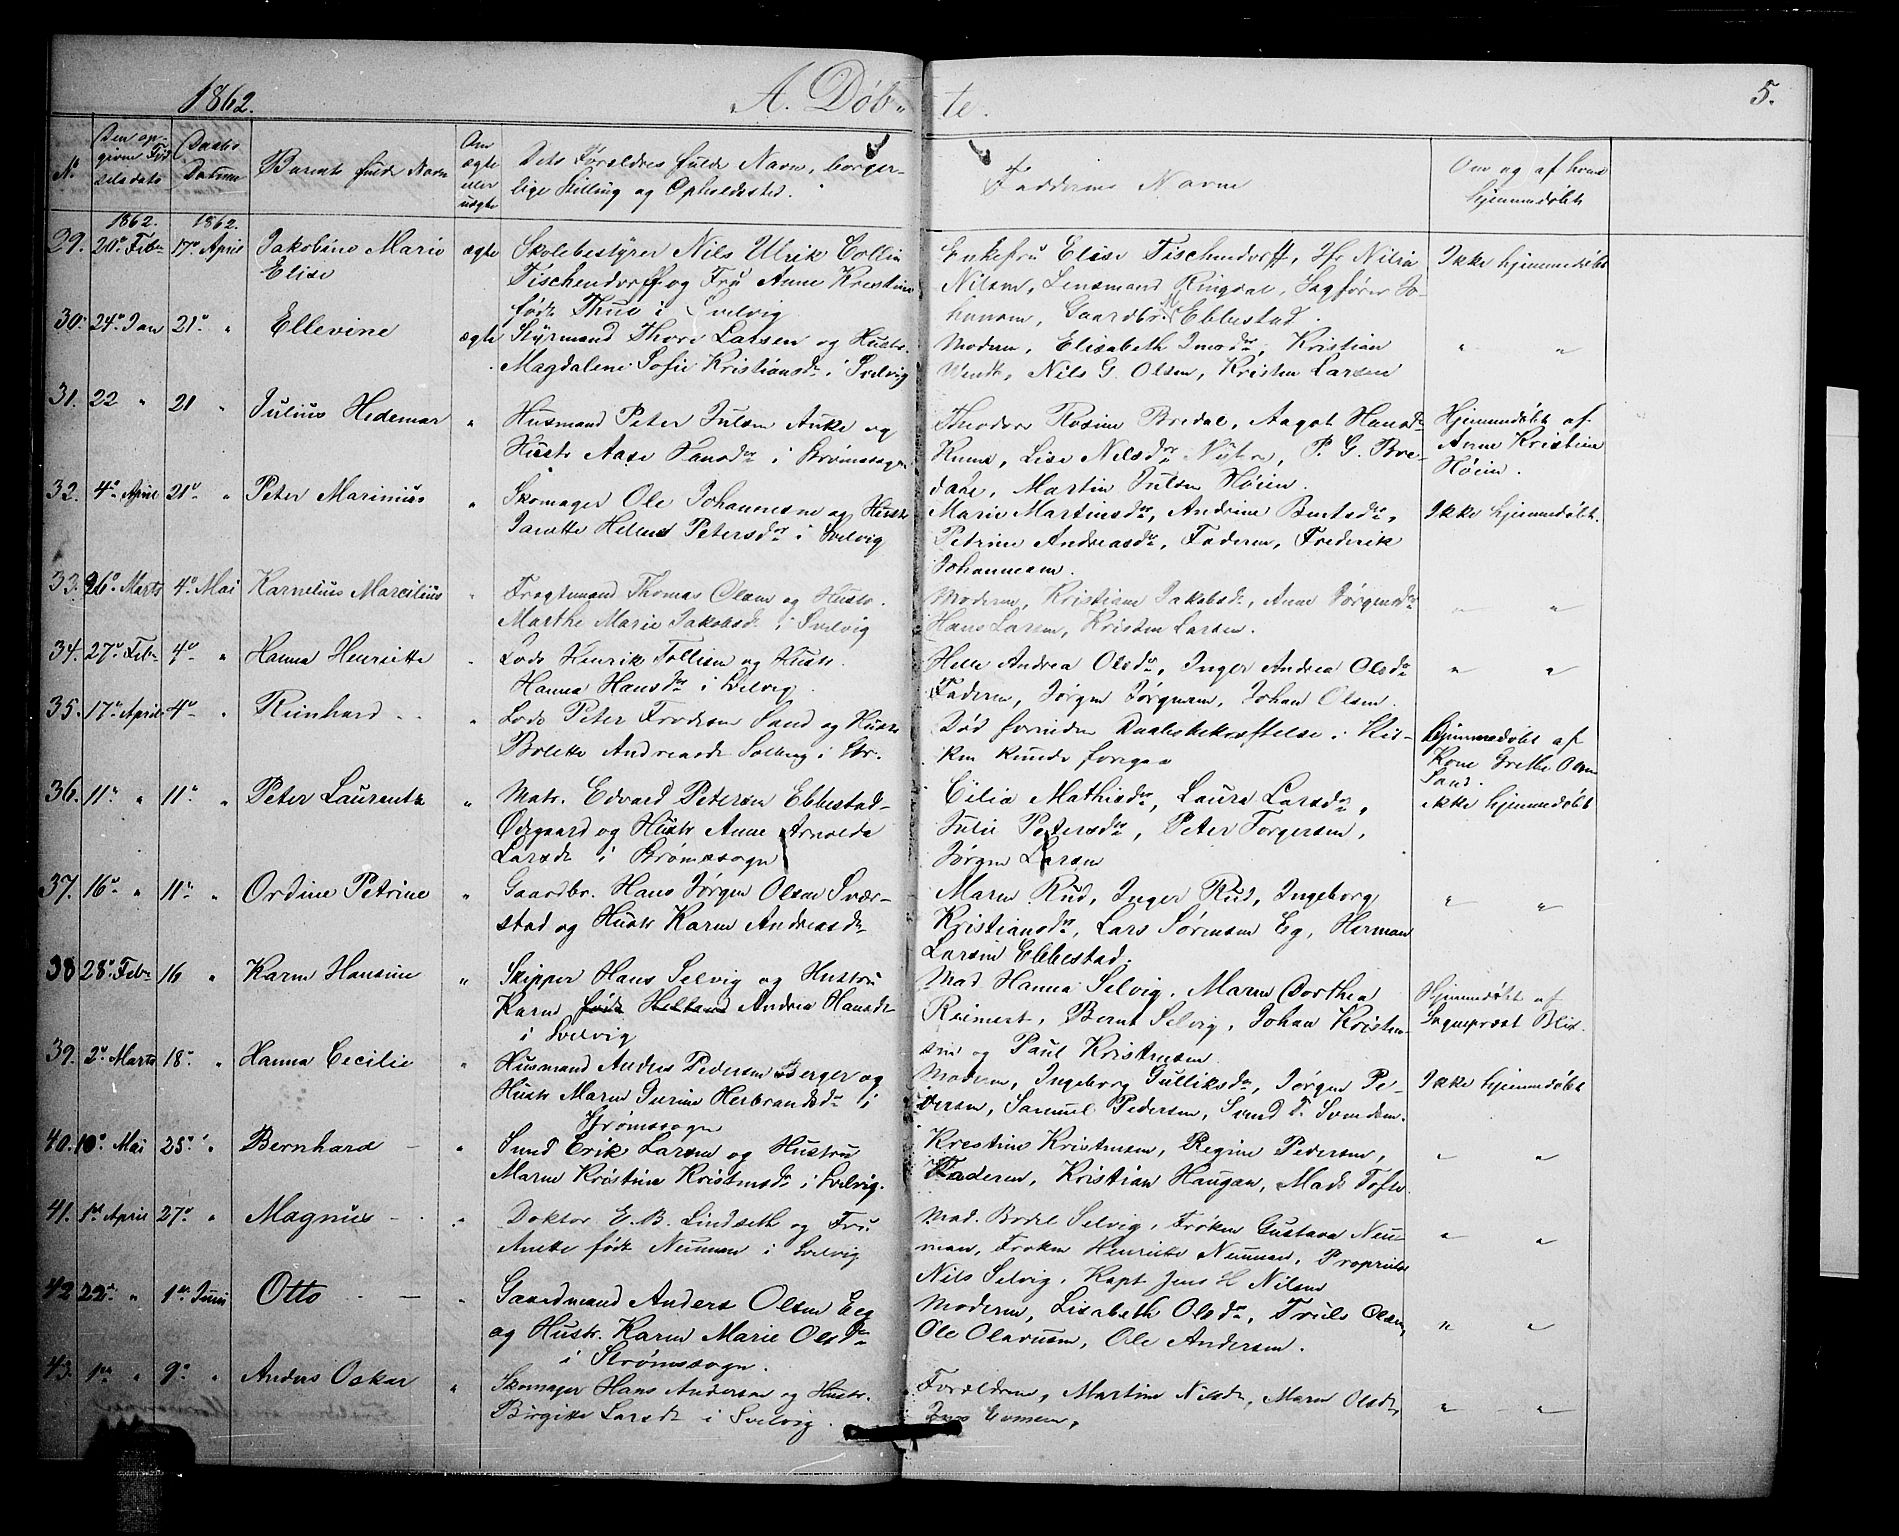 1862. A. Døb- te. 5.
No
Den op-
given Fød
selsdato
Daabs
Datum
Barnets fulde Navn
Om
ægte
eller
uægte
Dets Forældres fulde Navn, borger-
lige Stilling og Opholdssted.
Faddernes Navne
Om og af hvem
hjemmedøbt
1862. 1862.
29. 20de Febr 17de April Jakobine Marie
Elise
ægte Skolebestyrer Nils Ulrik Collin
Tischendorff og Fru Anne Kirstine
født Thue i Svelvig
Enkefru Elise Tischendorff, Hr Nils
Nilsen, Lensmand Ringdal, Sagfører Jo-
hansen, Gaardbr. Ebbestad.
Ikke hjemmedøbt
30. 24de Jan 21de " Ellevine
ægte Styrmand Thore Larsen og Hustr.
Magdalene Sofie Kristiansdr i Svelvig
Moderen, Elisabeth Jensdr, Kristian
Wendt, Nils G. Olsen, Kristen Larsen
" "
31. 22 " 21 " Julius Hedemar
" Husmand Peter Julsen Anke og
Hustr Aase Hansdr i Strømssogn
Theodora Rosine Bredal, Aagot Hansdr
Lise Nilsdr P. G. Bre-
dahl, Martin Julsen Höien.
Hjemmedøbt af
Anne Kristine
Höien.
32. 4de April 21de " Peter Marinius
" Skomager Ole Johannesen og Hustr
Helene Petersdr i Svelvig
Marie Martinsdr, Andrine Berntsdr,
Petrine Andreasdr, Faderen, Frederik
Johannesen.
Ikke hjemmedøbt.
33. 26de Marts 4de Mai Karnelius Marcilius
" Fragtemand Thomas Olsen og Hustr.
Marthe Marie Jakobsdr i Svelvig
Moderen, Kristiane Jakobsdr, Anne Jørgensdr
Hans Larsen, Kristen Larsen.
" "
34. 27de Febr 4de " Hanna Henriette
" Lods Henrik Tollisen og Hustr.
Hanna Hansdr i Svelvig.
Helle Andrea Olsdr, Inger Andrea Olsdr
Faderen, Jørgen Jørgensen, Johan Olsen.
" "
35. 17de April 4de " Reinhard - -
" Lods Peter Frodesen Sand og Hustr
Bolette Andreasdr Solberg i Str.
Død forinden Daabsbekræftelse i Kir-
ken kunde foregaa
Hjemmedøbt af
Kone Grethe Olsen
Sand.
36. 11te " 11te " Peter Laurentz
" Matr. Edvard Petersen Ebbestad-
Ødegaard og Hustr Anne Arnolda
Larsdr i Strømssogn
Cilia Mathisdr, Laura Larsdr,
Julie Petersdr, Peter Torgersen,
Jørgen Larsen
ikke hjemmedøbt
37. 16de " 11te " Ordine Petrine
" Gaardbr. Hans Jørgen Olsen Svær-
stad og Hustr Karen Andreasdr
Maren Rud, Inger Rud, Ingeborg
Kristiansdr, Lars Sørensen Eg, Herman
Larsen Ebbestad.
" "
38 28de Febr 16 " Karen Hansine
" Skipper Hans Selvig og Hustru
Karen født Andrea Hansdr
i Svelvig
Mad. Hanna Selvig, Maren Dorthea
Reimert, Bernt Selvig, Johan Kristen-
sen og Paul Kristensen
Hjemmedøbt af
Sognepræst Blix.
39. 2de Marts 18de " Hanna Cecilie
" Husmand Anders Pedersen Berger og
Hustr Maren Gurine Herbrandsdr i
Strømssogn
Moderen, Ingeborg Gulliksdr, Jørgen Pe-
dersen, Samuel Pedersen, Svend T. Svendsen.
Ikke hjemmedøbt
40. 10de Mai 25de " Bernhard -
" Svend Erik Larsen og Hustru
Maren Kristine Kristensdr i Svelvig.
Krestine Kristensen, Regine Pedersen,
Faderen, Kristian Haugan, Mads Tofte
" "
41. 1ste April 27de " Magnus - -
" Doktor E. B. Lindseth og Fru
Anette født Neuman i Svelvig
Mad. Bodil Selvig, Frøken Gustava Neu-
man, Frøken Henriette Neuman, Proprietær
Nils Selvig, Kapt Jens H Nilsen
" "
42. 22de " 1ste Juni Otto - -
" Gaardmand Anders Olsen Eeg
og Hustr. Karen Marie Olsdr
i Strømssogn.
Moderen, Lisabeth Olsdr, Truls Olsen,
Ole Olavusen, Ole Andersen.
" "
43. 1ste " 9de " Anders Oskar
" Skomager Hans Andersen og Hustr.
Birgitte Larsdr i Svelvig.
Forældrene, Martine Nilsdr, Maren Olsdr,
Jens Evensen,
" "